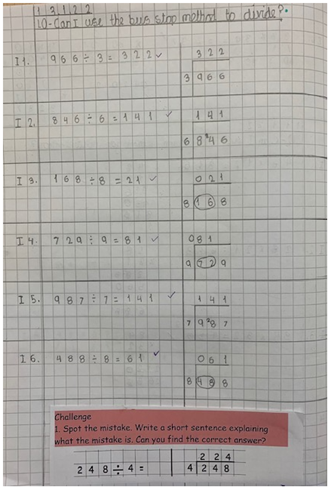 LO-Can I use the bus stop method to divide?
I 1. 966÷3=322✓ 322
3 966
I 2. 846÷6=141✓ 141
6 8²46
I 3. 168÷8=21✓ 021
8 168
I 4. 729÷9=81✓ 081
9 729
I 5. 987÷7=141✓ 141
7 9²87
I 6. 488÷8=61✓ 061
8 488
Challenge
1. Spot the mistake. Write a short sentence explaining
what the mistake is. Can you find the correct answer?
2 2 4
2 4 8 ÷ 4 = 4 2 4 8